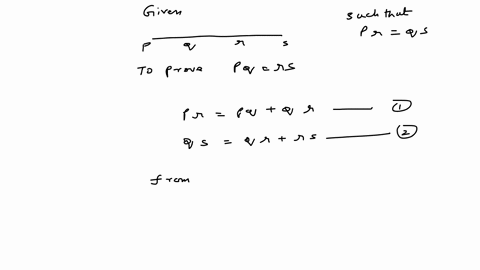 Given
such that
Pr = qs
P q r s
TO prove Pq = rs
Pr = Pq + qr —— ①
qs = qr + rs —— ②
from